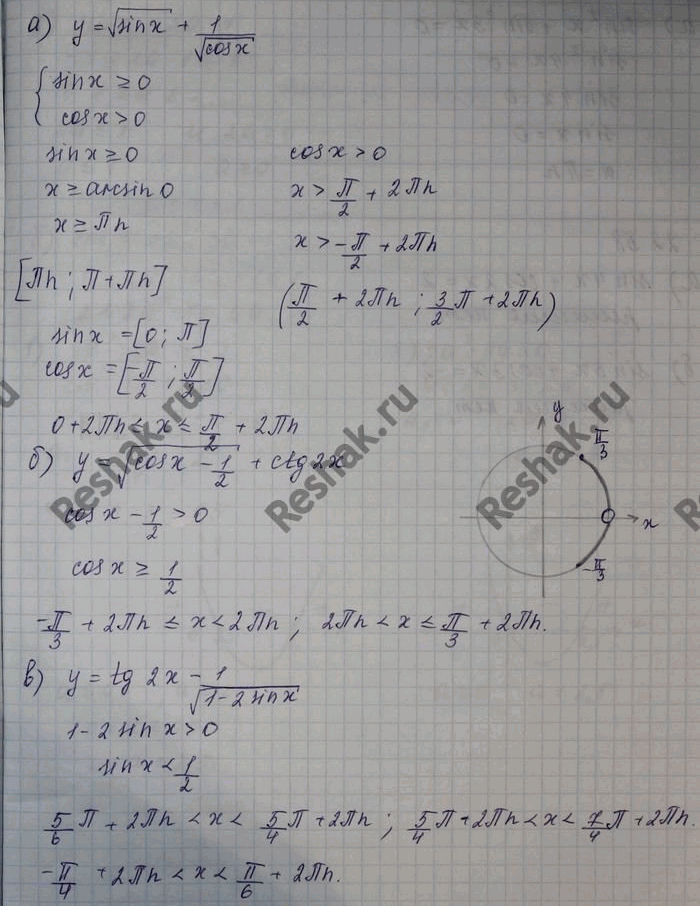 а) y = √sinx + 1/√cosx
{ sinx ≥ 0
cosx > 0
sinx ≥ 0
x ≥ arcsin 0
x ≥ πn
[πn ; π + πn]
cosx > 0
x > π/2 + 2πn
x > -π/2 + 2πn
(π/2 + 2πn ; 3/2 π + 2πn)
sinx = [0 ; π]
cosx = [-π/2 ; π/2]
0 + 2πn ≤ x ≤ π/2 + 2πn
б) y = √cosx - 1/2 + ctg 2x
cosx - 1/2 > 0
cosx ≥ 1/2
y
π/3
x
-π/3
-π/3 + 2πn ≤ x < 2πn ; 2πn < x ≤ π/3 + 2πn.
в) y = tg 2x - 1/√1 - 2 sinx
1 - 2 sin x > 0
sin x < 1/2
5/6 π + 2πn < x < 5/4 π + 2πn ; 5/4 π + 2πn < x < 7/4 π + 2πn.
-π/4 + 2πn < x < π/6 + 2πn.
Reshak.ru
Reshak.ru
Reshak.ru